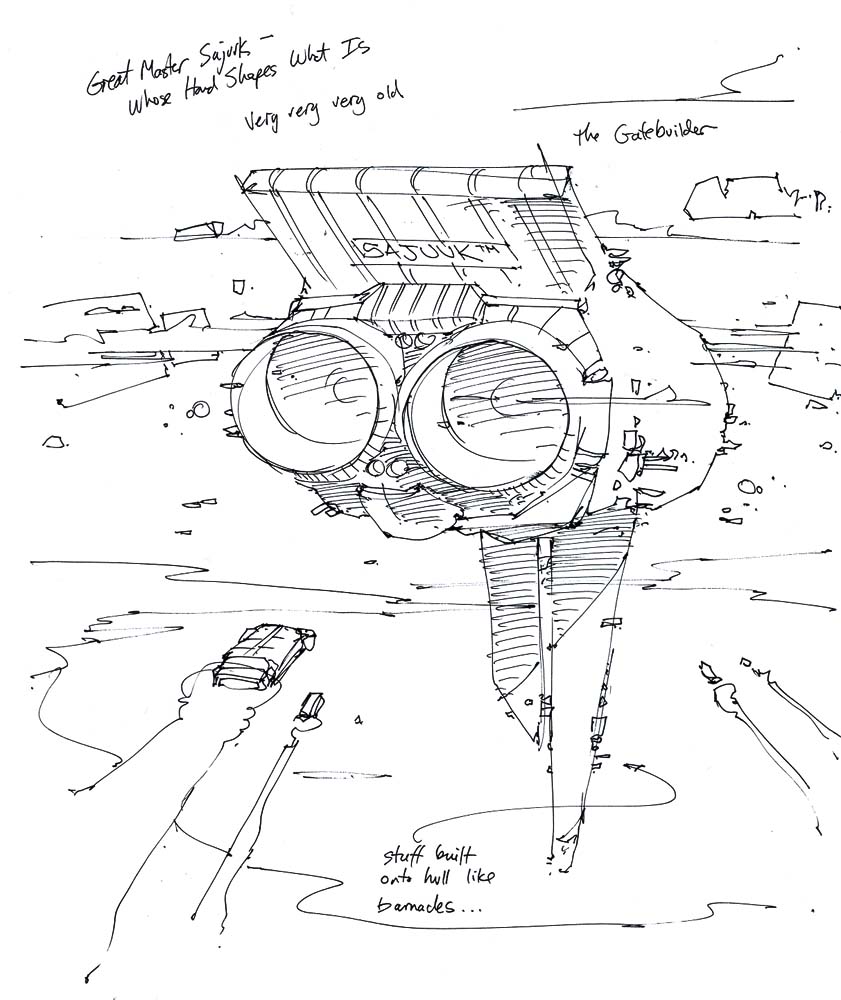 Great Master Sajuuk –
Whose Hand Shapes What Is
very very very old
the Gatebuilder
SAJUUK™
stuff built
onto hull like
barnacles...